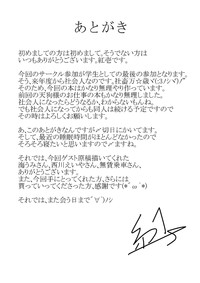 あとがき
初めましての方は初めまして、そうでない方は
いつもありがとうございます、紅壱です。
今回のサークル参加が学生としての最後の参加になります。
そう、来年度から社会人なのです。社畜万☆歳ヾ(:3ﾉｼヾ)ﾉｼ
そのため、今回の本はかなり無理やり作っています。
前回の天狗様のお仕事の本もかなり無理しました。
社会人になったらどうなるか、わからないもんね。
でも社会人になってからも同人は続ける予定ですので
その時はよろしくお願いします。
あ、このあとがきなんですが〆切日にかいてます。
そして、最近の睡眠時間がほとんどなかったので
そろそろ寝たいと思いますので〆ますね。
それでは、今回ゲスト原稿描いてくれた
海うみさん、西川えいやさん、無賃乗車さん、
ありがとうございます。
また、今回手にとってくれた方、さらには
買っていってくださった方、感謝です(*´ω｀*)
それでは、また会う日まで ﾞ∀ﾞ)ﾉｼ